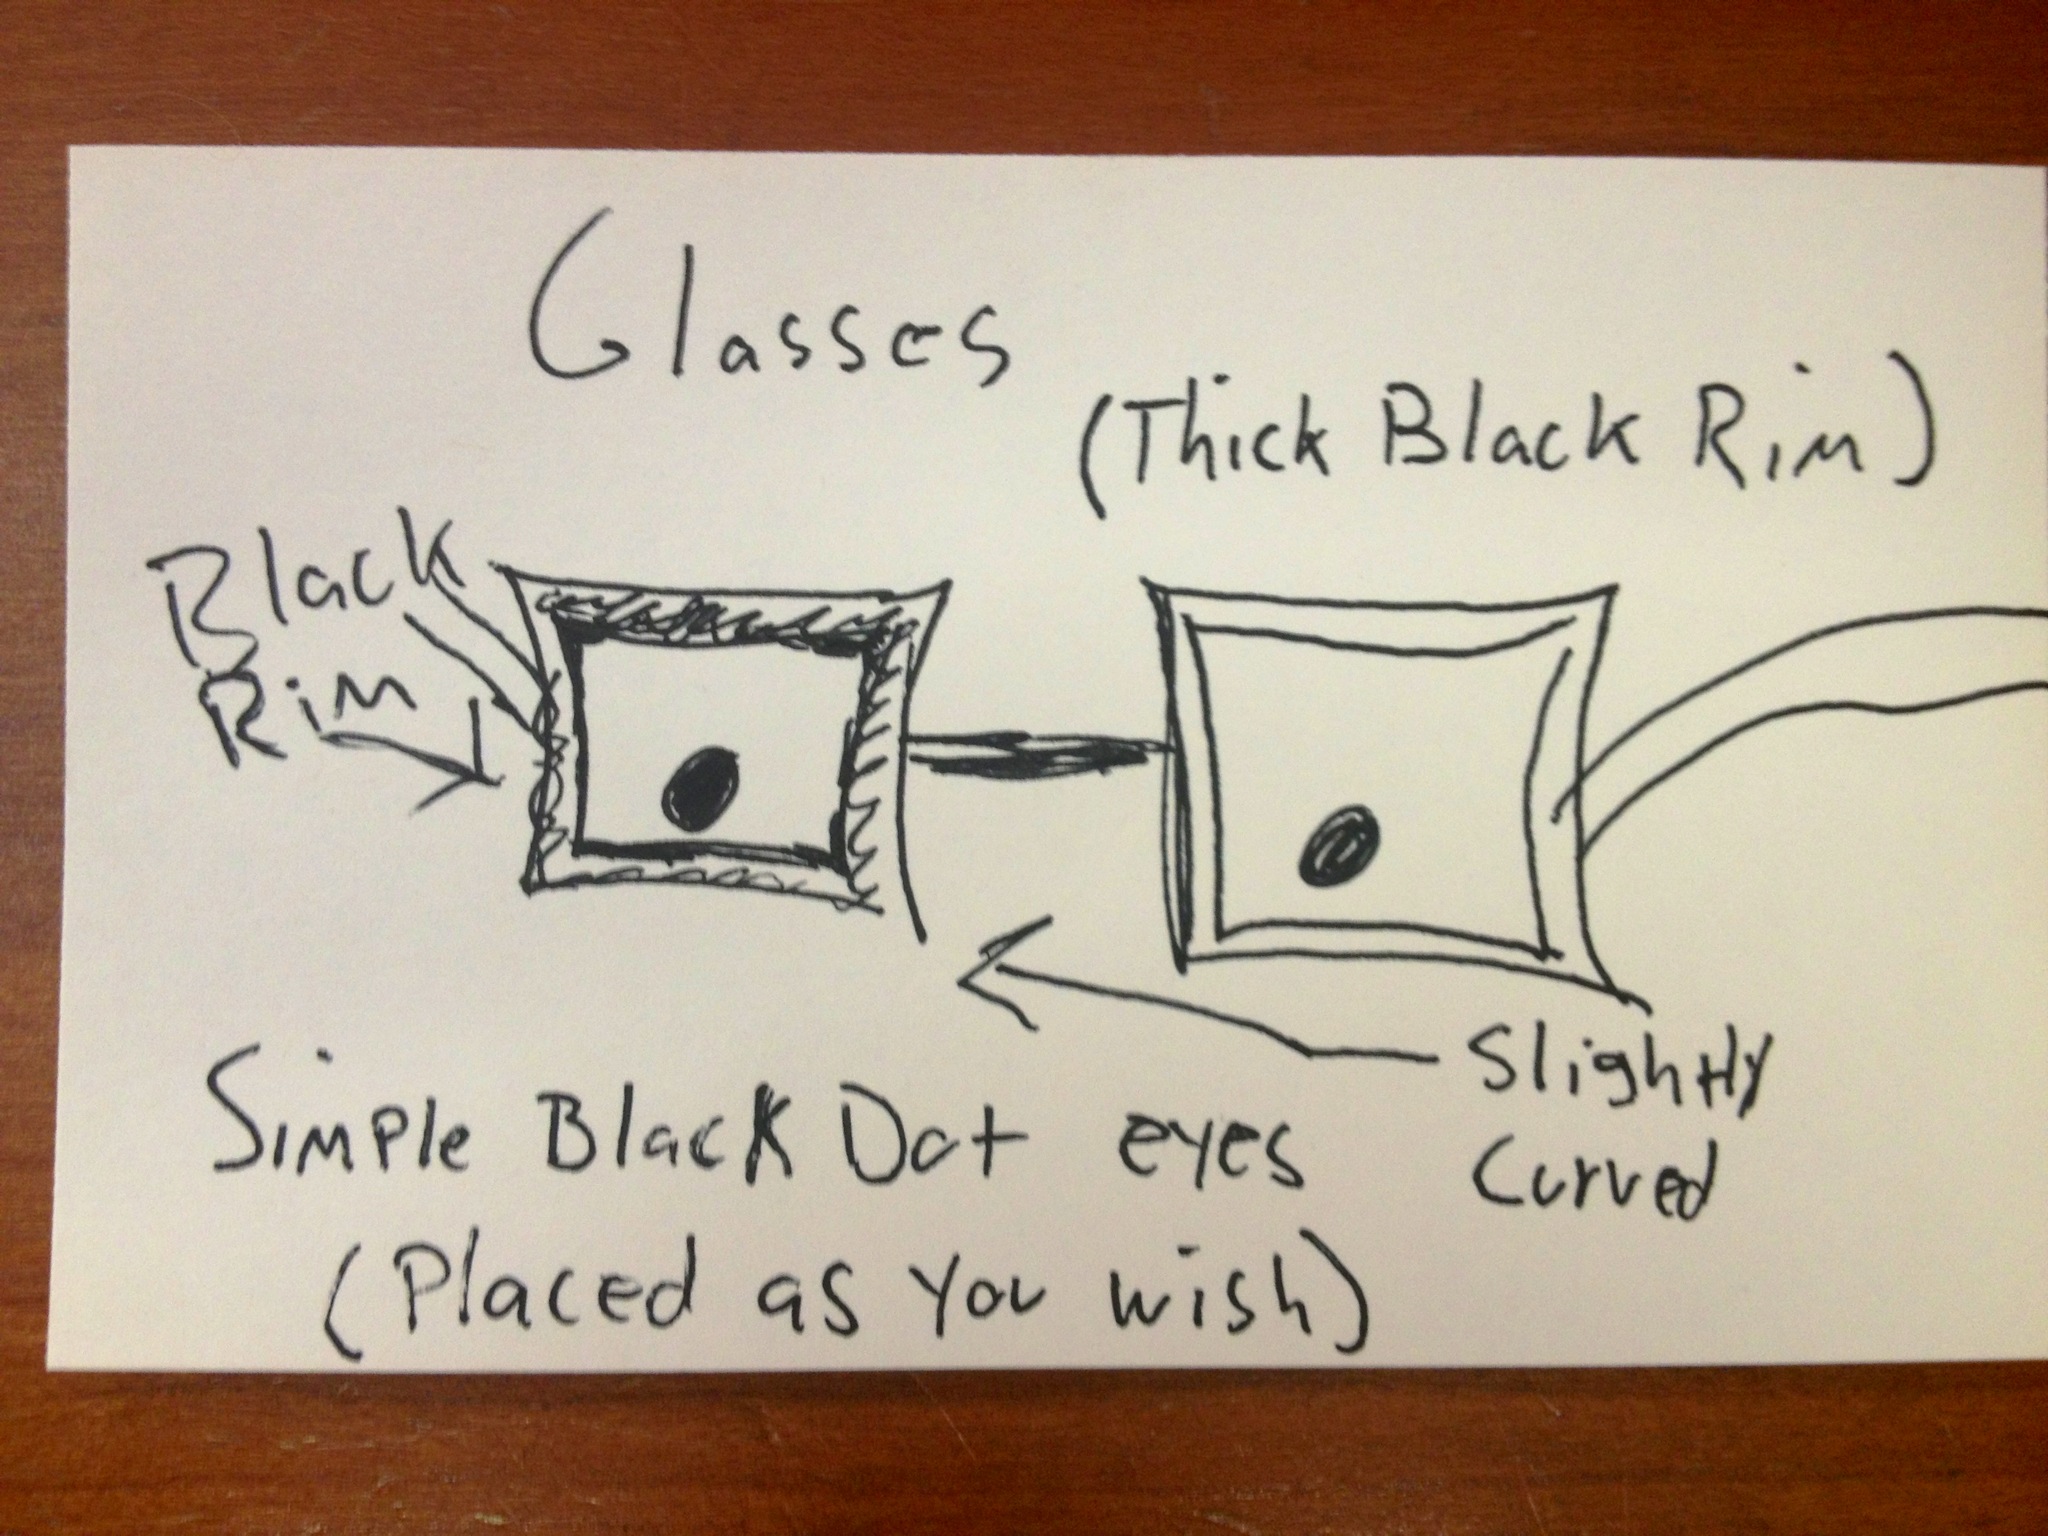 Glasses
(Thick Black Rim)
Black
Rim
Slightly
Curved
Simple Black Dot eyes
(Placed as you wish)